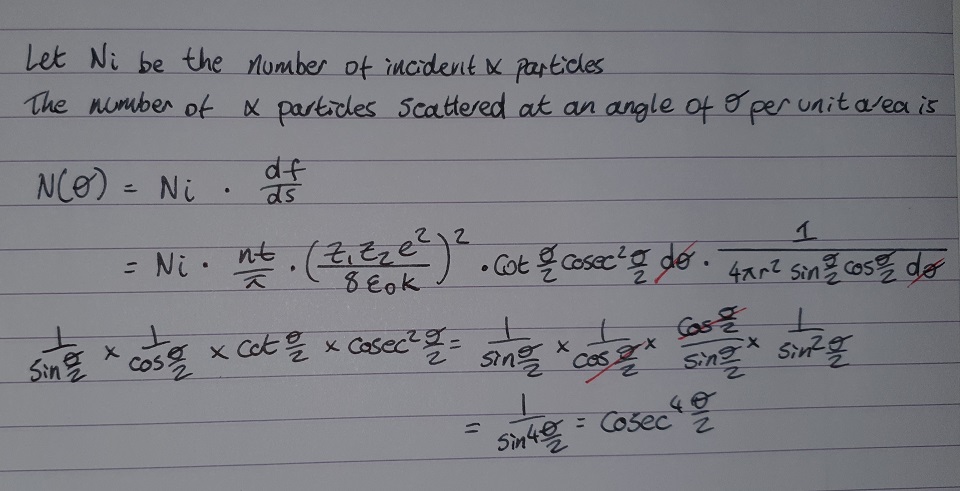 Let Ni be the number of incident α particles
The number of α particles scattered at an angle of θ per unit area is
N(θ) = Ni · df/ds
= Ni · nt/π · (Z₁Z₂e²/8ε₀k)² · cot θ/2 cosec² θ/2 dθ · 1/(4πr² sin θ/2 cos θ/2 dθ)
1/(sin θ/2) × 1/(cos θ/2) × cot θ/2 × cosec² θ/2 = 1/(sin θ/2) × 1/(cos θ/2) × (cos θ/2)/(sin θ/2) × 1/(sin² θ/2)
= 1/(sin⁴ θ/2) = cosec⁴ θ/2